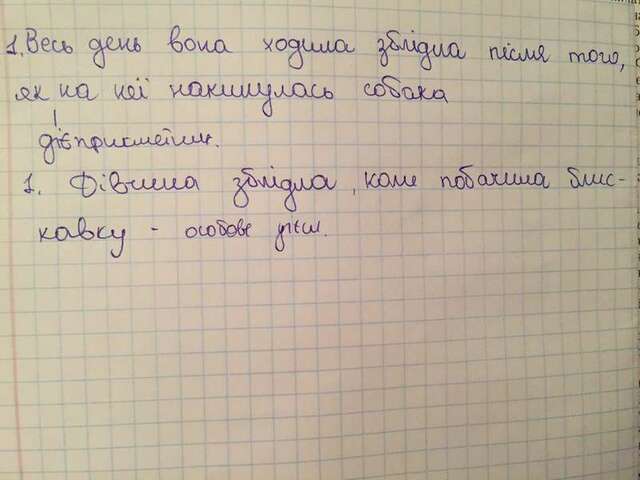 1. Весь день вона ходила зблідла після того,
як на неї накинулась собака
дієприкметник.
1. Дівчина зблідла, коли побачила блис-
кавку - особове дієсл.